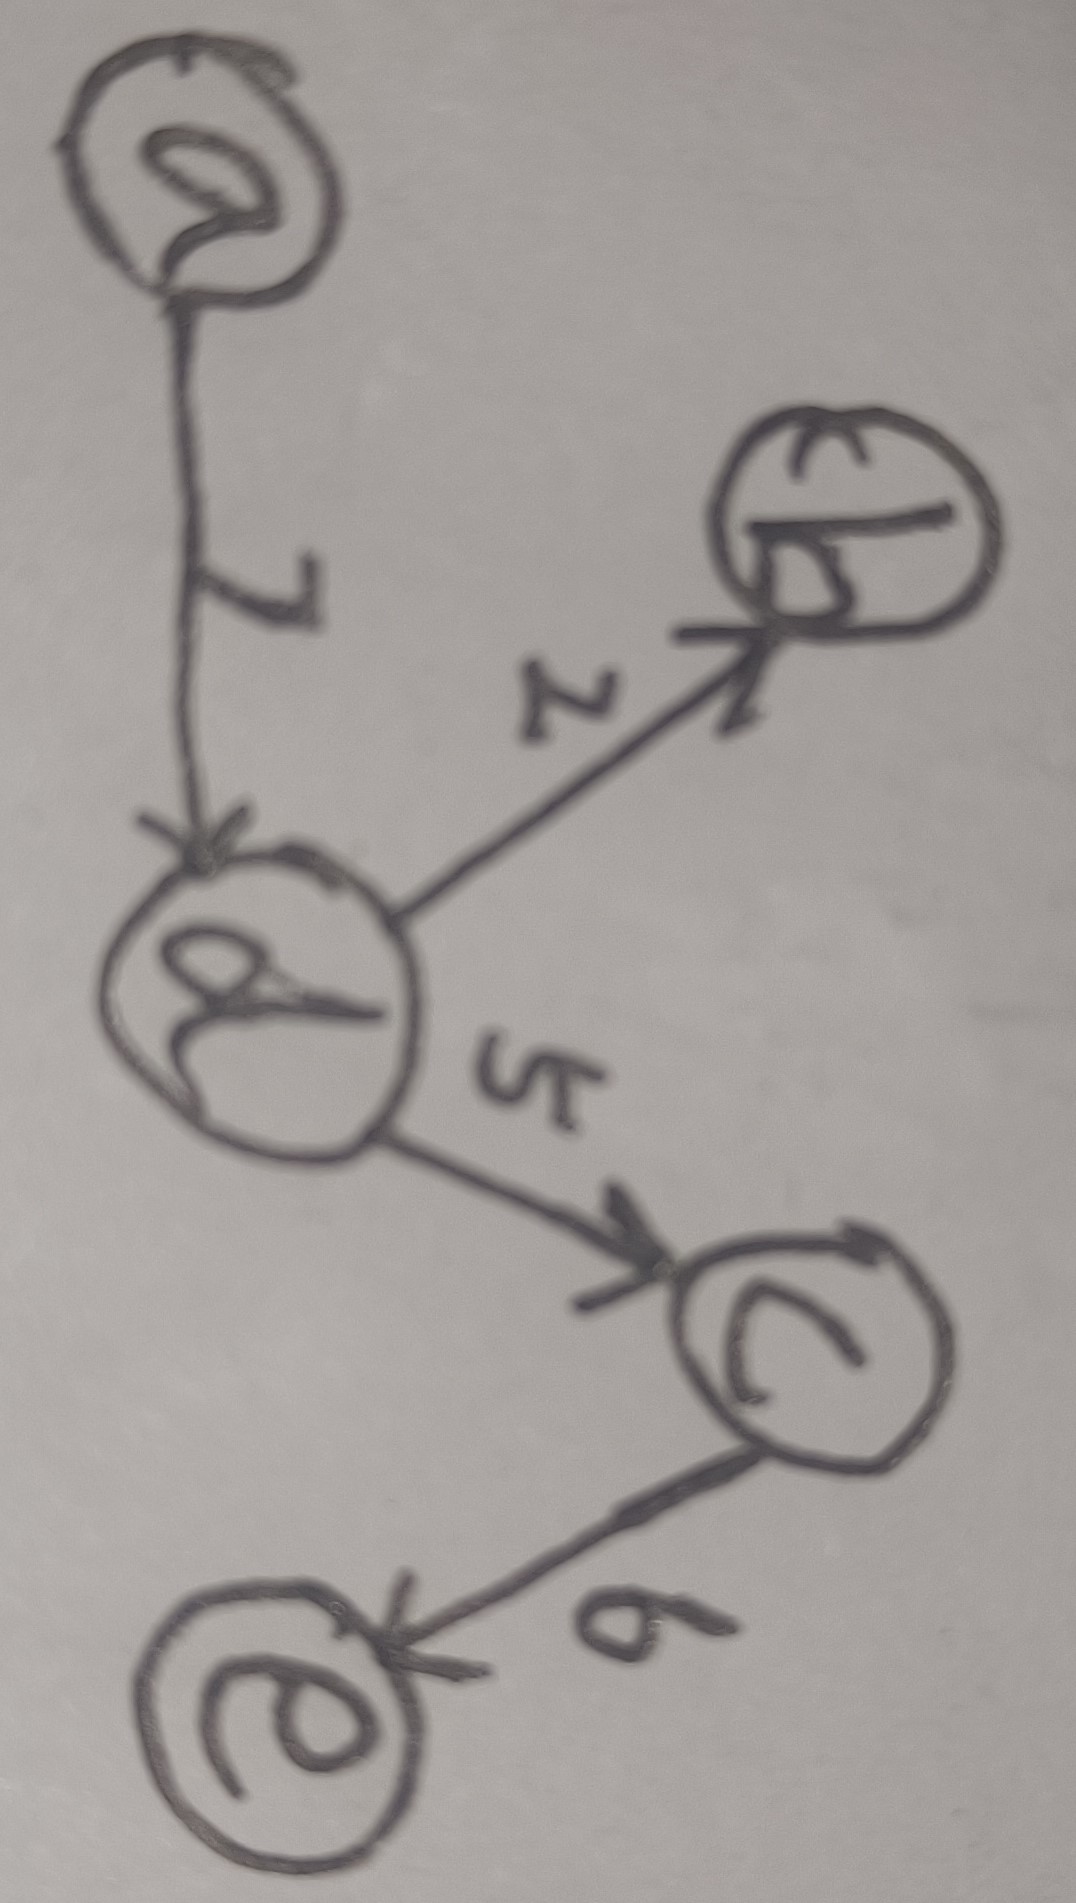 b
c
2
5
6
a
7
d
e